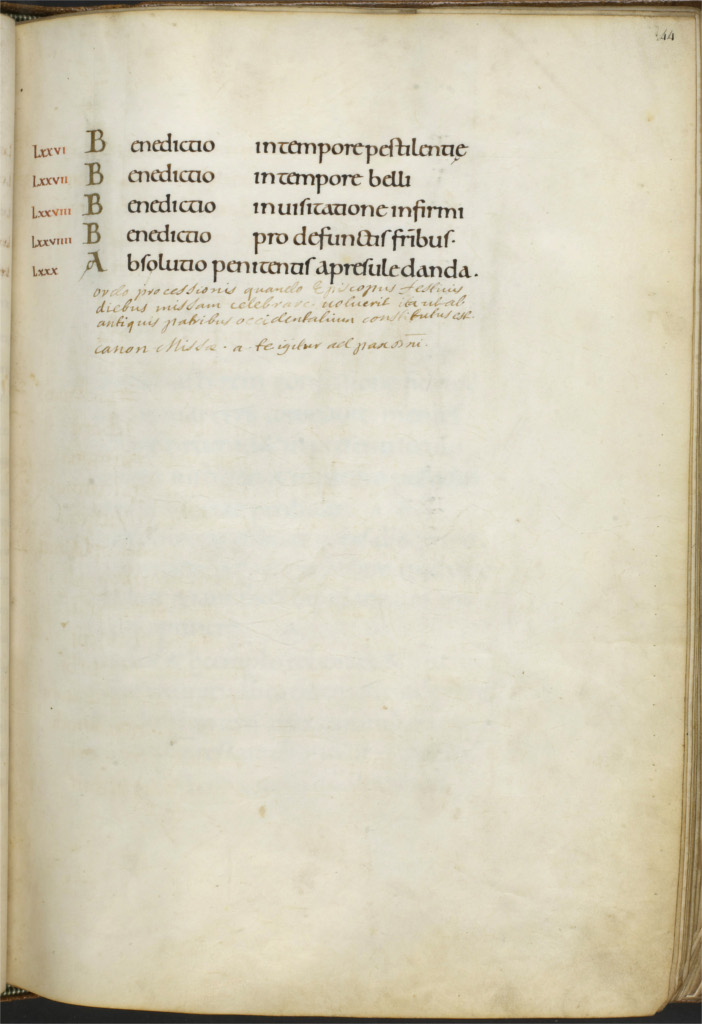 44
Lxxvi Benedictio in tempore pestilentię
Lxxvii Benedictio in tempore belli
Lxxviii Benedictio in uisitatione infirmi
Lxxviiii Benedictio pro defunctis fr̄ibus.
Lxxx Absolutio penitentis a presule danda.
ordo processionis quando Episcopus festiuis
diebus missam celebrare uoluerit ita ut ab
antiquis patribus occidentalium constitutus est.
canon Missæ. a te igitur ad pax